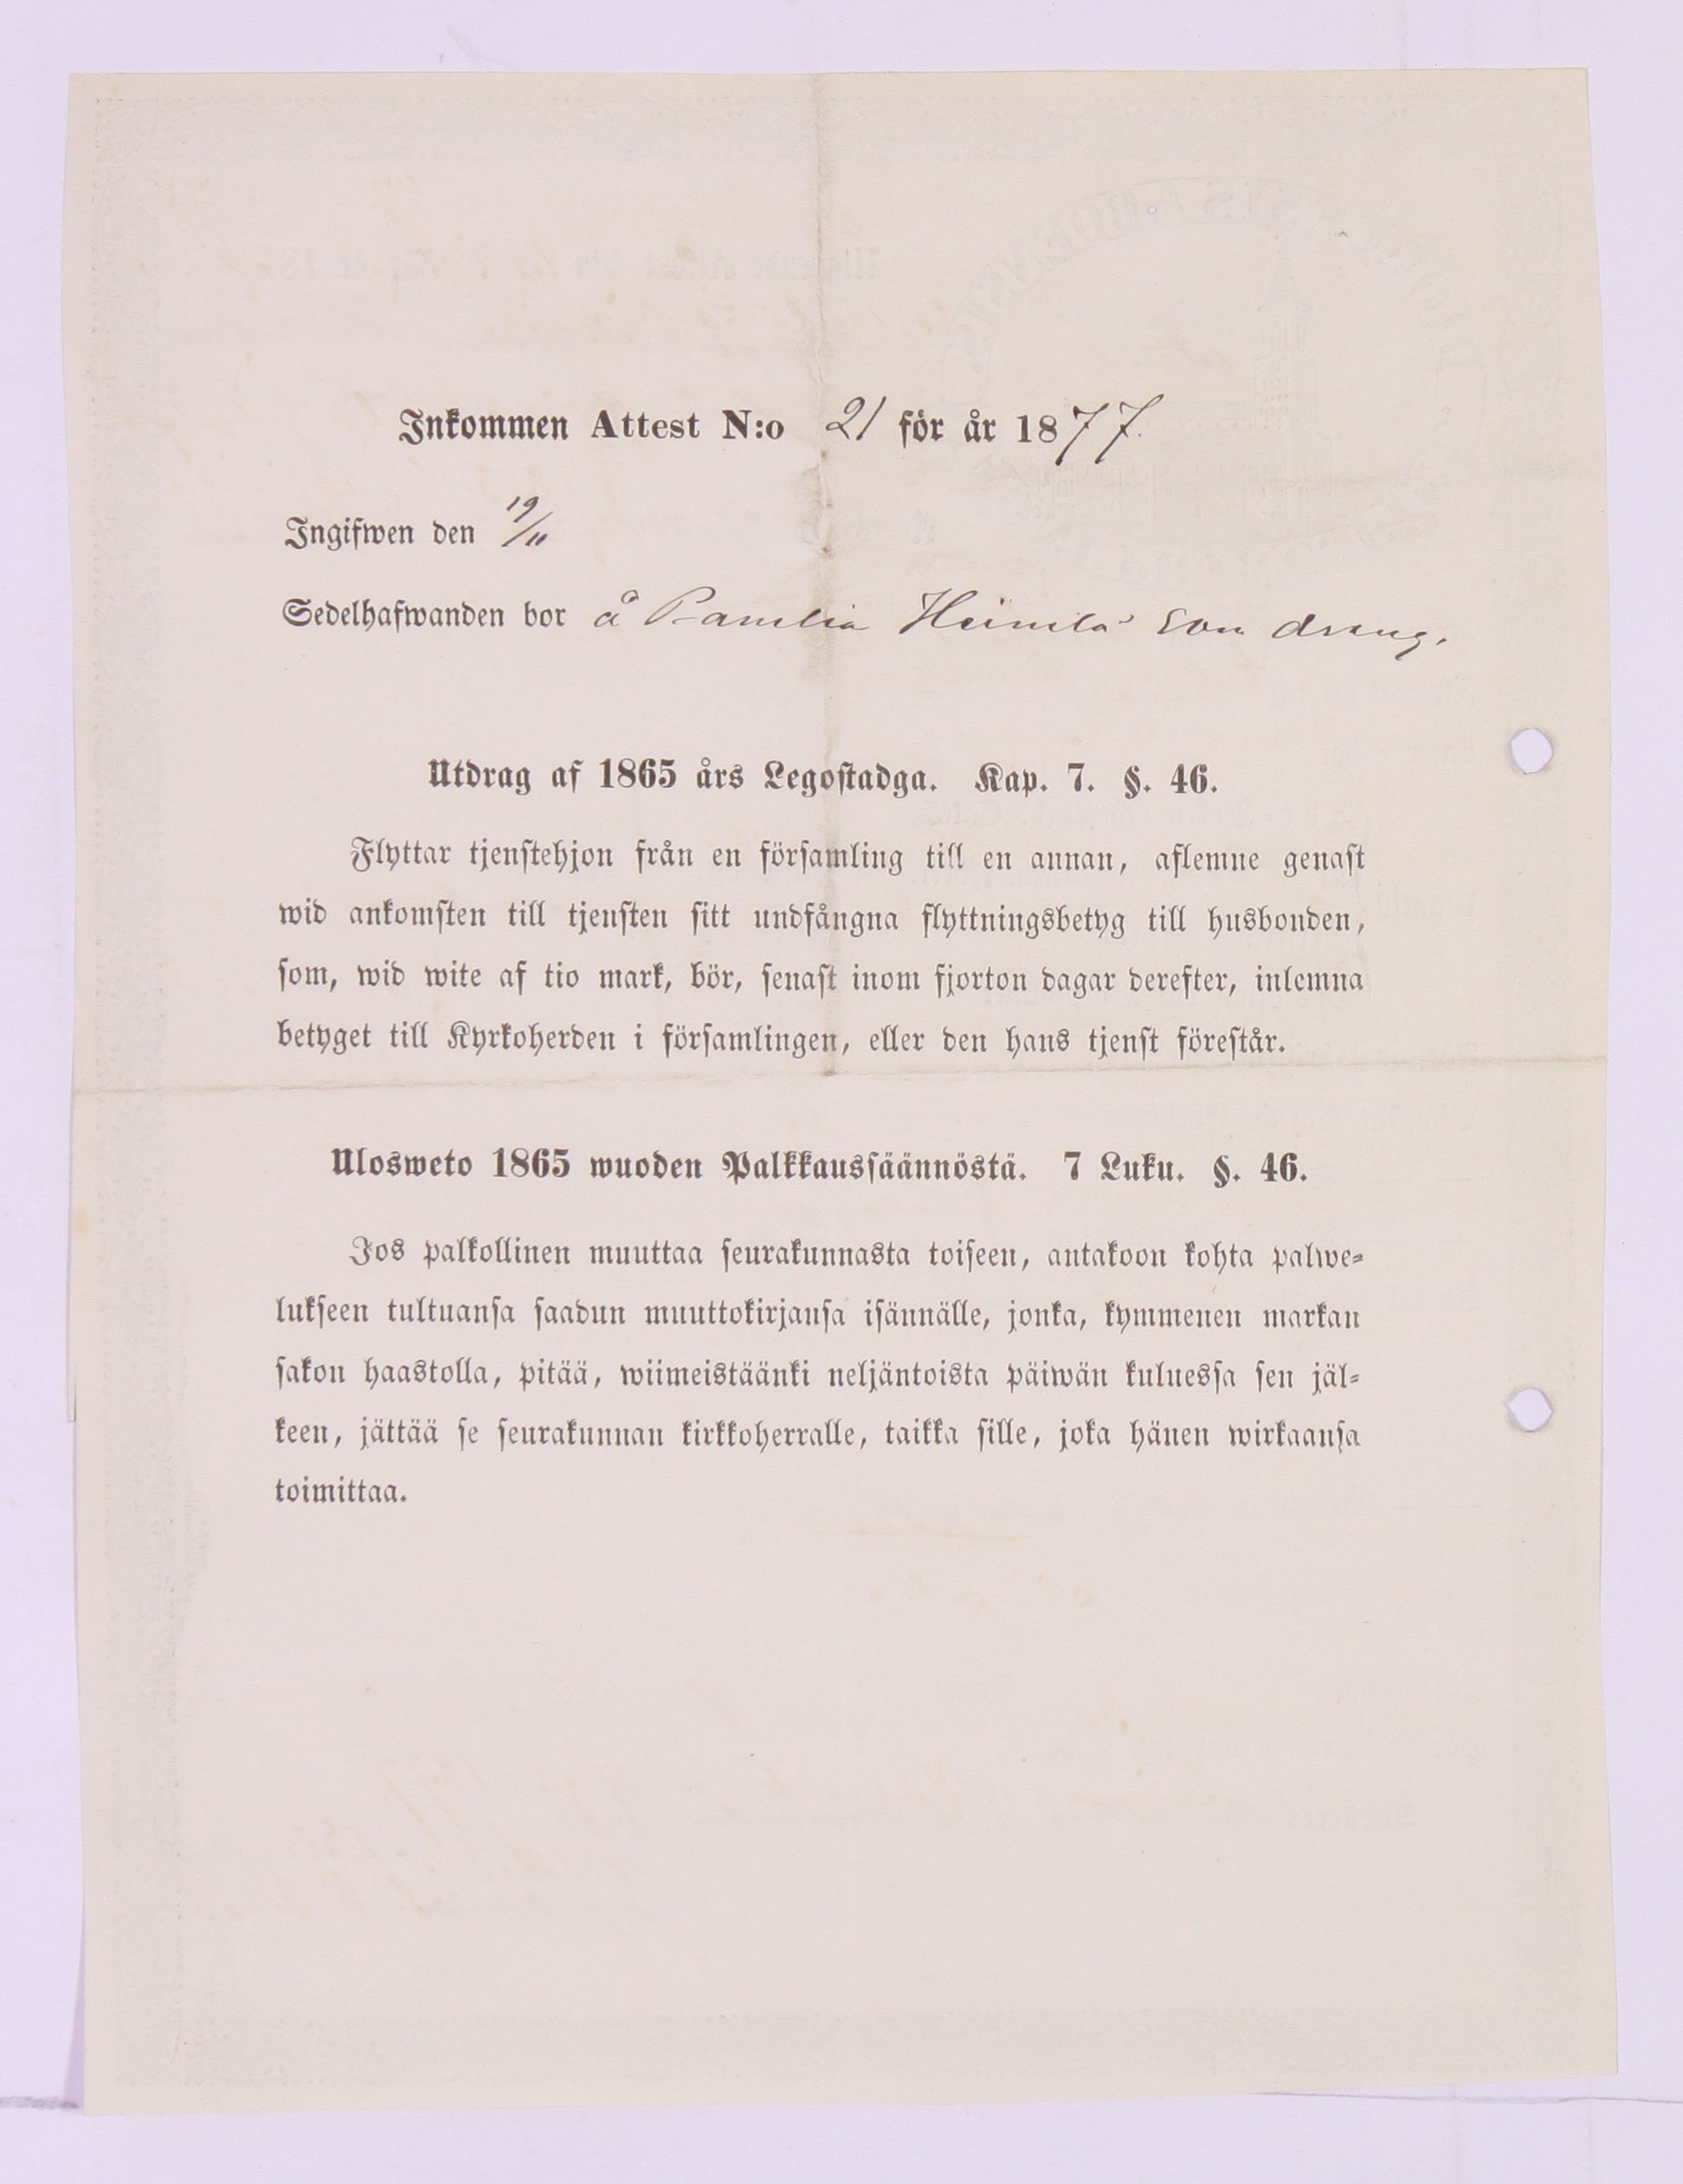 Inkommen Attest N:o 21 för år 1877.
Ingifwen den 19/11
Sedelhafwanden bor å Heimilä som dräng.
Utdrag af 1865 års Legostadga. Kap. 7. §. 46.
Flyttar tjenstehjon från en församling till en annan, aflemne genast
wid ankomsten till tjensten sitt undfångna flyttningsbetyg till husbonden,
som, wid wite af tio mark, bör, senast inom fjorton dagar derefter, inlemna
betyget till Kyrkoherden i församlingen, eller den hans tjenst förestår.
Ulosweto 1865 wuoden Palkkaussäännöstä. 7 Luku. §. 46.
Jos palkollinen muuttaa seurakunnasta toiseen, antakoon kohta palwe-
lukseen tultuansa saadun muuttokirjansa isännälle, jonka, kymmenen markan
sakon haastolla, pitää, wiimeistäänki neljäntoista päiwän kuluessa sen jäl-
keen, jättää se seurakunnan kirkkoherralle, taikka sille, joka hänen wirkaansa
toimittaa.